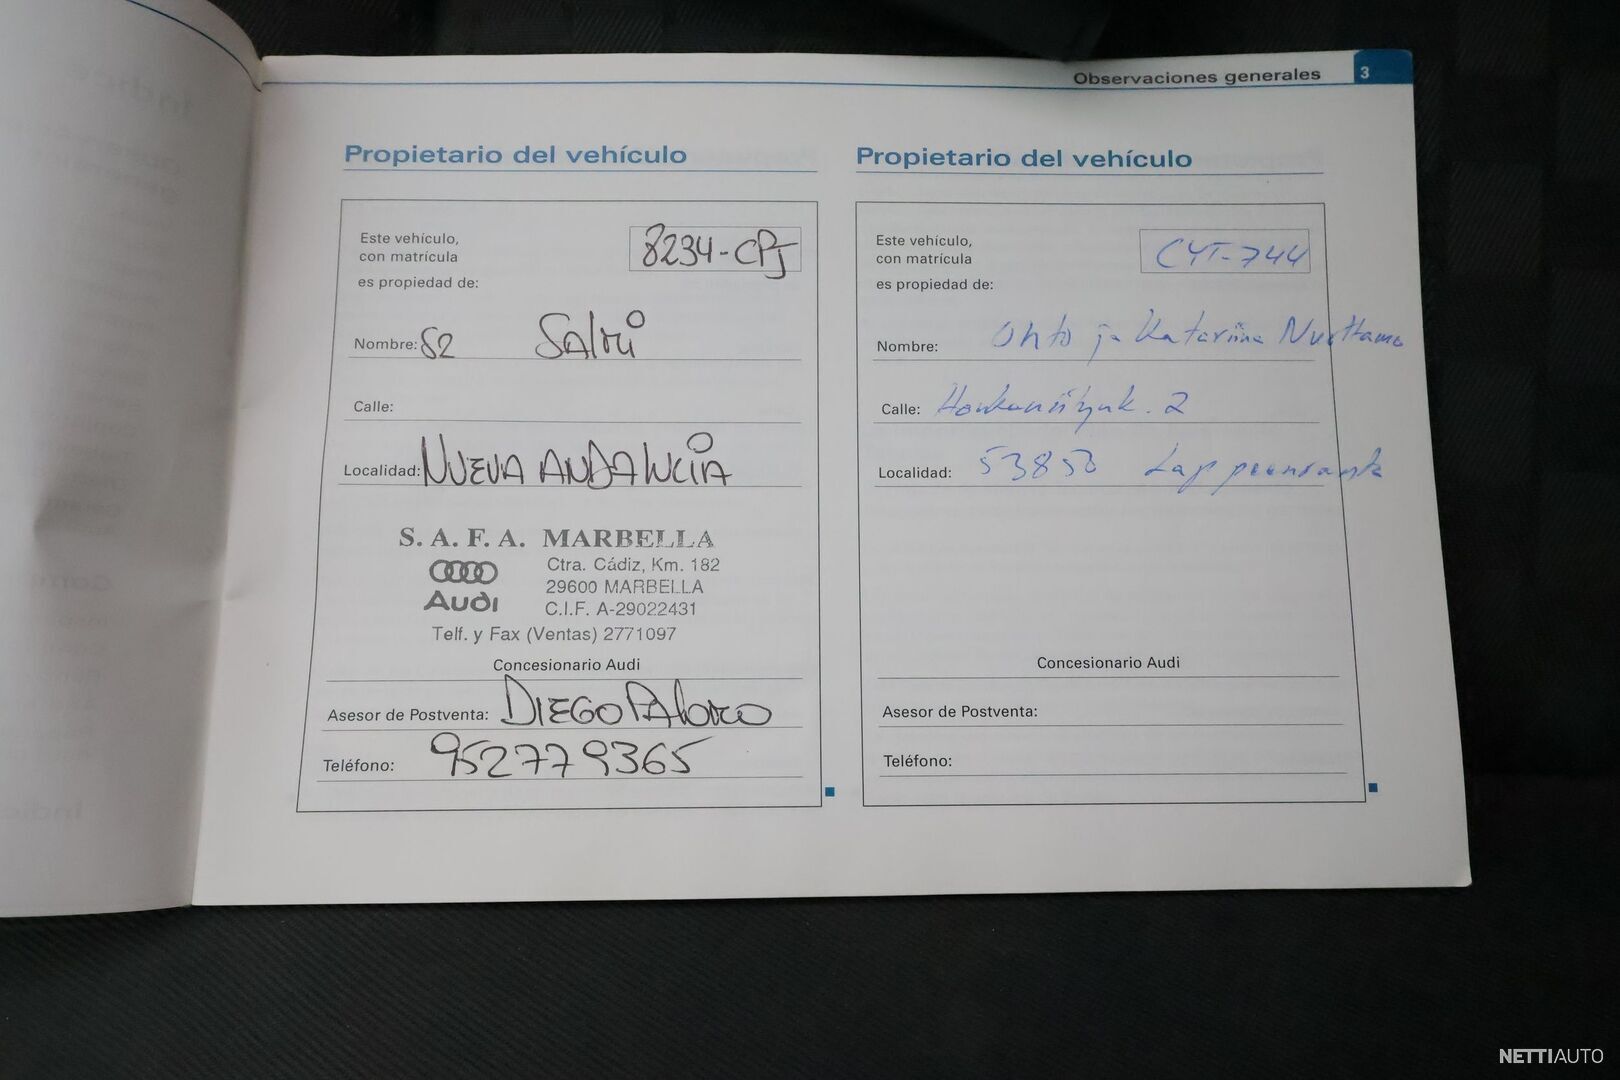 Observaciones generales 3
Propietario del vehículo
Este vehículo,
con matrícula
8234-CPJ
es propiedad de:
Nombre: S2 Salmi
Calle:
Localidad: NUEVA ANDALUCIA
S. A. F. A. MARBELLA
Ctra. Cádiz, Km. 182
Audi
29600 MARBELLA
C.I.F. A-29022431
Telf. y Fax (Ventas) 2771097
Concesionario Audi
Asesor de Postventa: DIEGO
Teléfono: 952779365
Propietario del vehículo
Este vehículo,
con matrícula
CYT-744
es propiedad de:
Nombre: Ohto ja Katariina
Calle: 2
Localidad: 53850 Lappeenranta
Concesionario Audi
Asesor de Postventa:
Teléfono:
NETTIAUTO